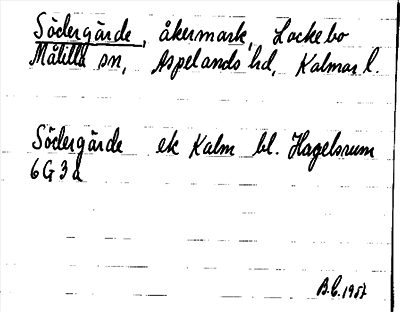 Södergärde, åkermark, Lockebo
Målilla sn, Aspelands hd, Kalmar l.
Södergärde ek Kalm bl. Hagelsrum
6G3a
B.C. 1957